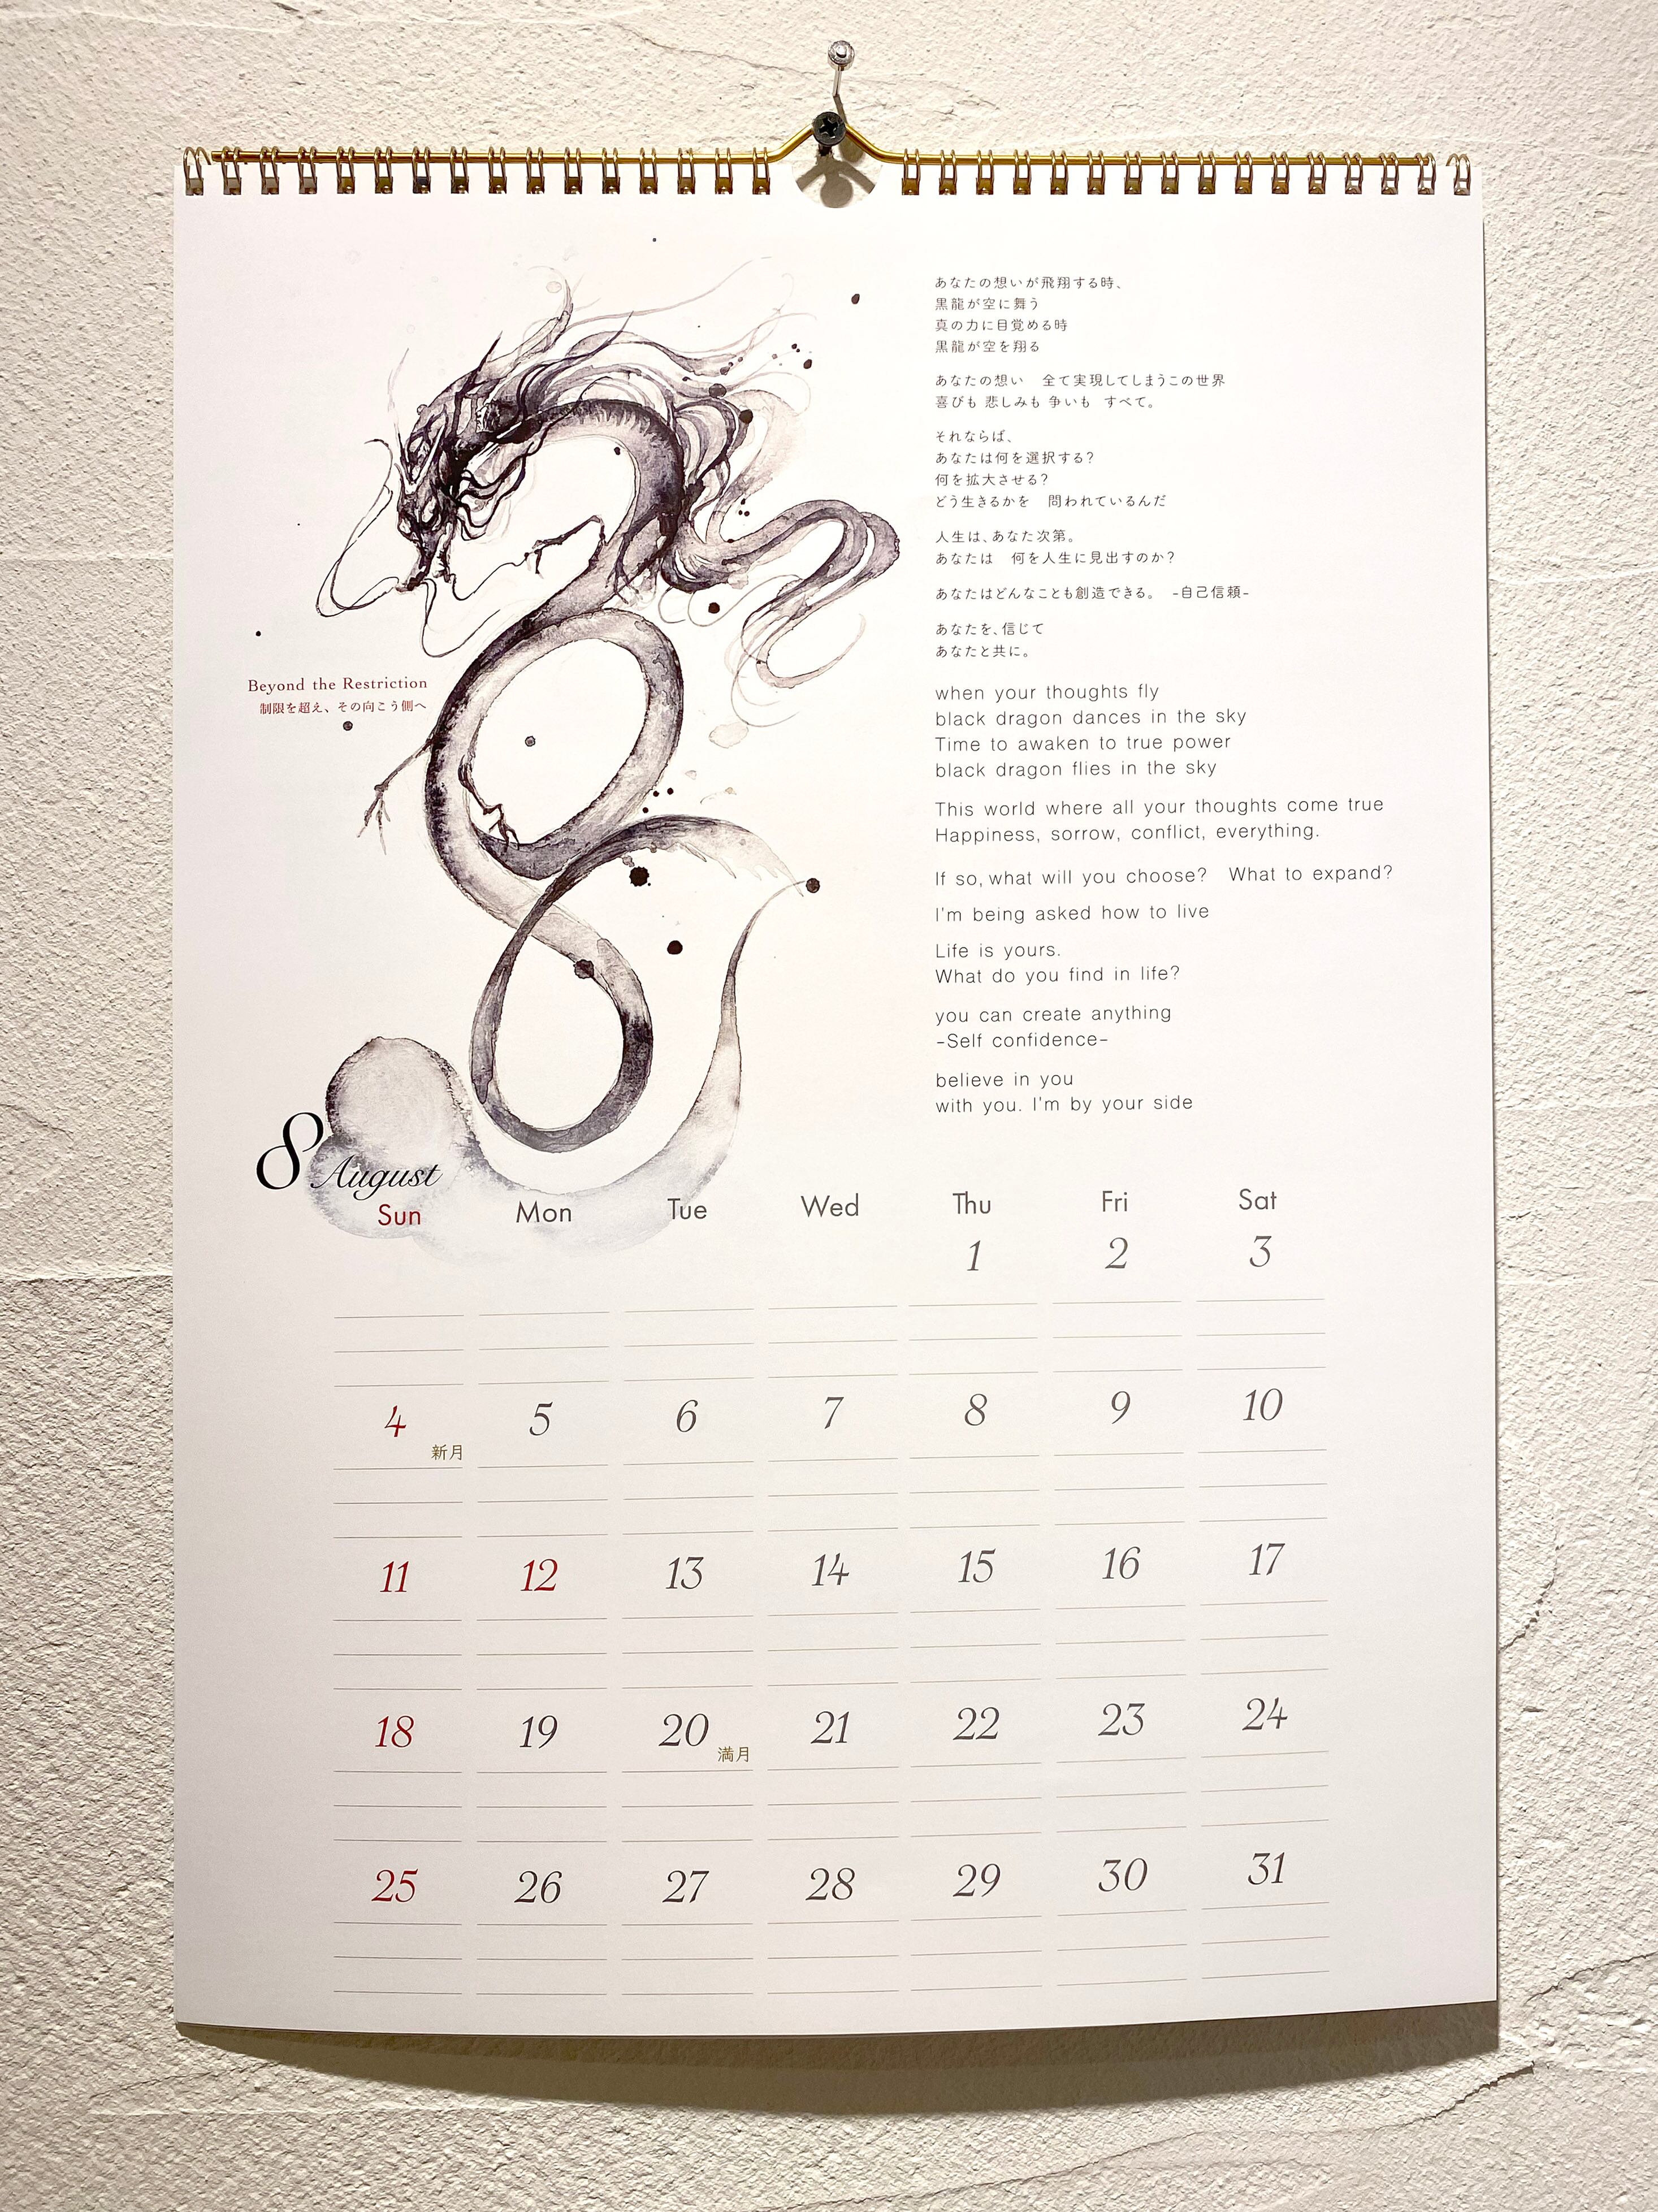 あなたの想いが飛翔する時、
黒龍が空に舞う
真の力に目覚める時
黒龍が空を翔る
あなたの想い　全て実現してしまうこの世界
喜びも 悲しみも 争いも すべて。
それならば、
あなたは何を選択する？
何を拡大させる？
どう生きるかを　問われているんだ
人生は、あなた次第。
あなたは　何を人生に見出すのか？
あなたはどんなことも創造できる。 -自己信頼-
あなたを、信じて
あなたと共に。
Beyond the Restriction
制限を超え、その向こう側へ
when your thoughts fly
black dragon dances in the sky
Time to awaken to true power
black dragon flies in the sky
This world where all your thoughts come true
Happiness, sorrow, conflict, everything.
If so, what will you choose? What to expand?
I'm being asked how to live
Life is yours.
What do you find in life?
you can create anything
-Self confidence-
believe in you
with you. I'm by your side
8 August
Sun Mon Tue Wed Thu Fri Sat
1 2 3
4 5 6 7 8 9 10
新月
11 12 13 14 15 16 17
18 19 20 21 22 23 24
満月
25 26 27 28 29 30 31